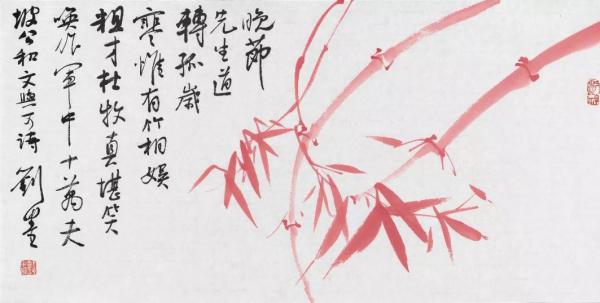 晚節
先生道
轉孤歲
寒惟有竹相娱
粗才杜牧真堪笑
喚作軍中十萬夫
坡公和文與可詩 劉墨